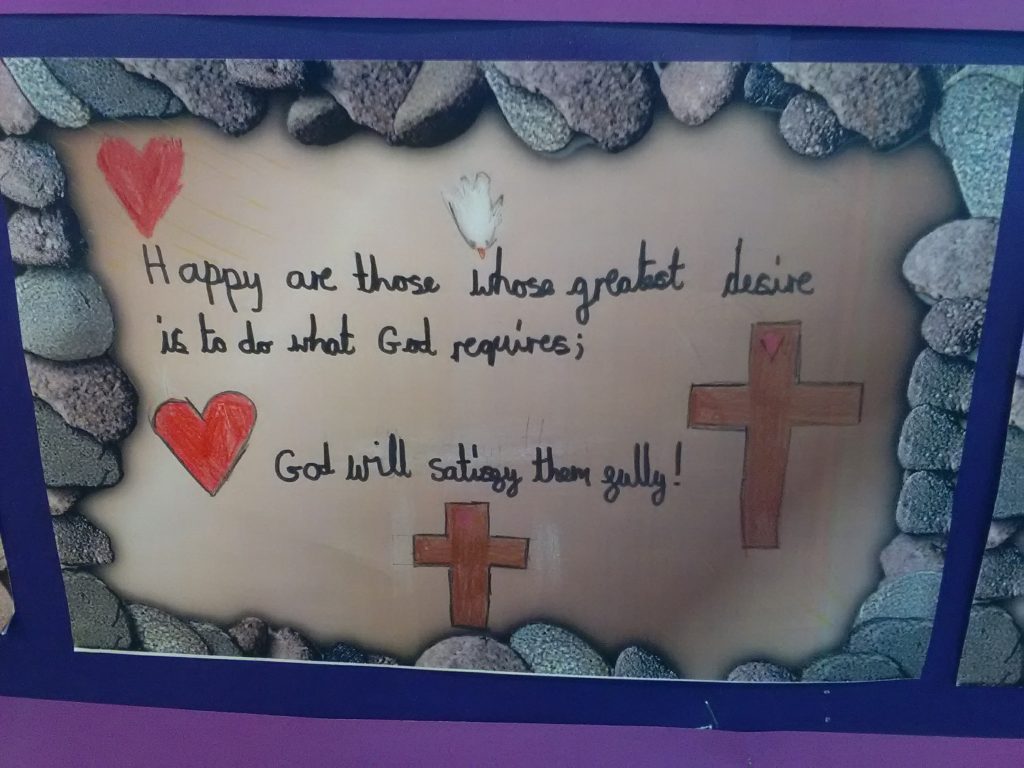 Happy are those whose greatest desire
is to do what God requires;
God will satisfy them fully!